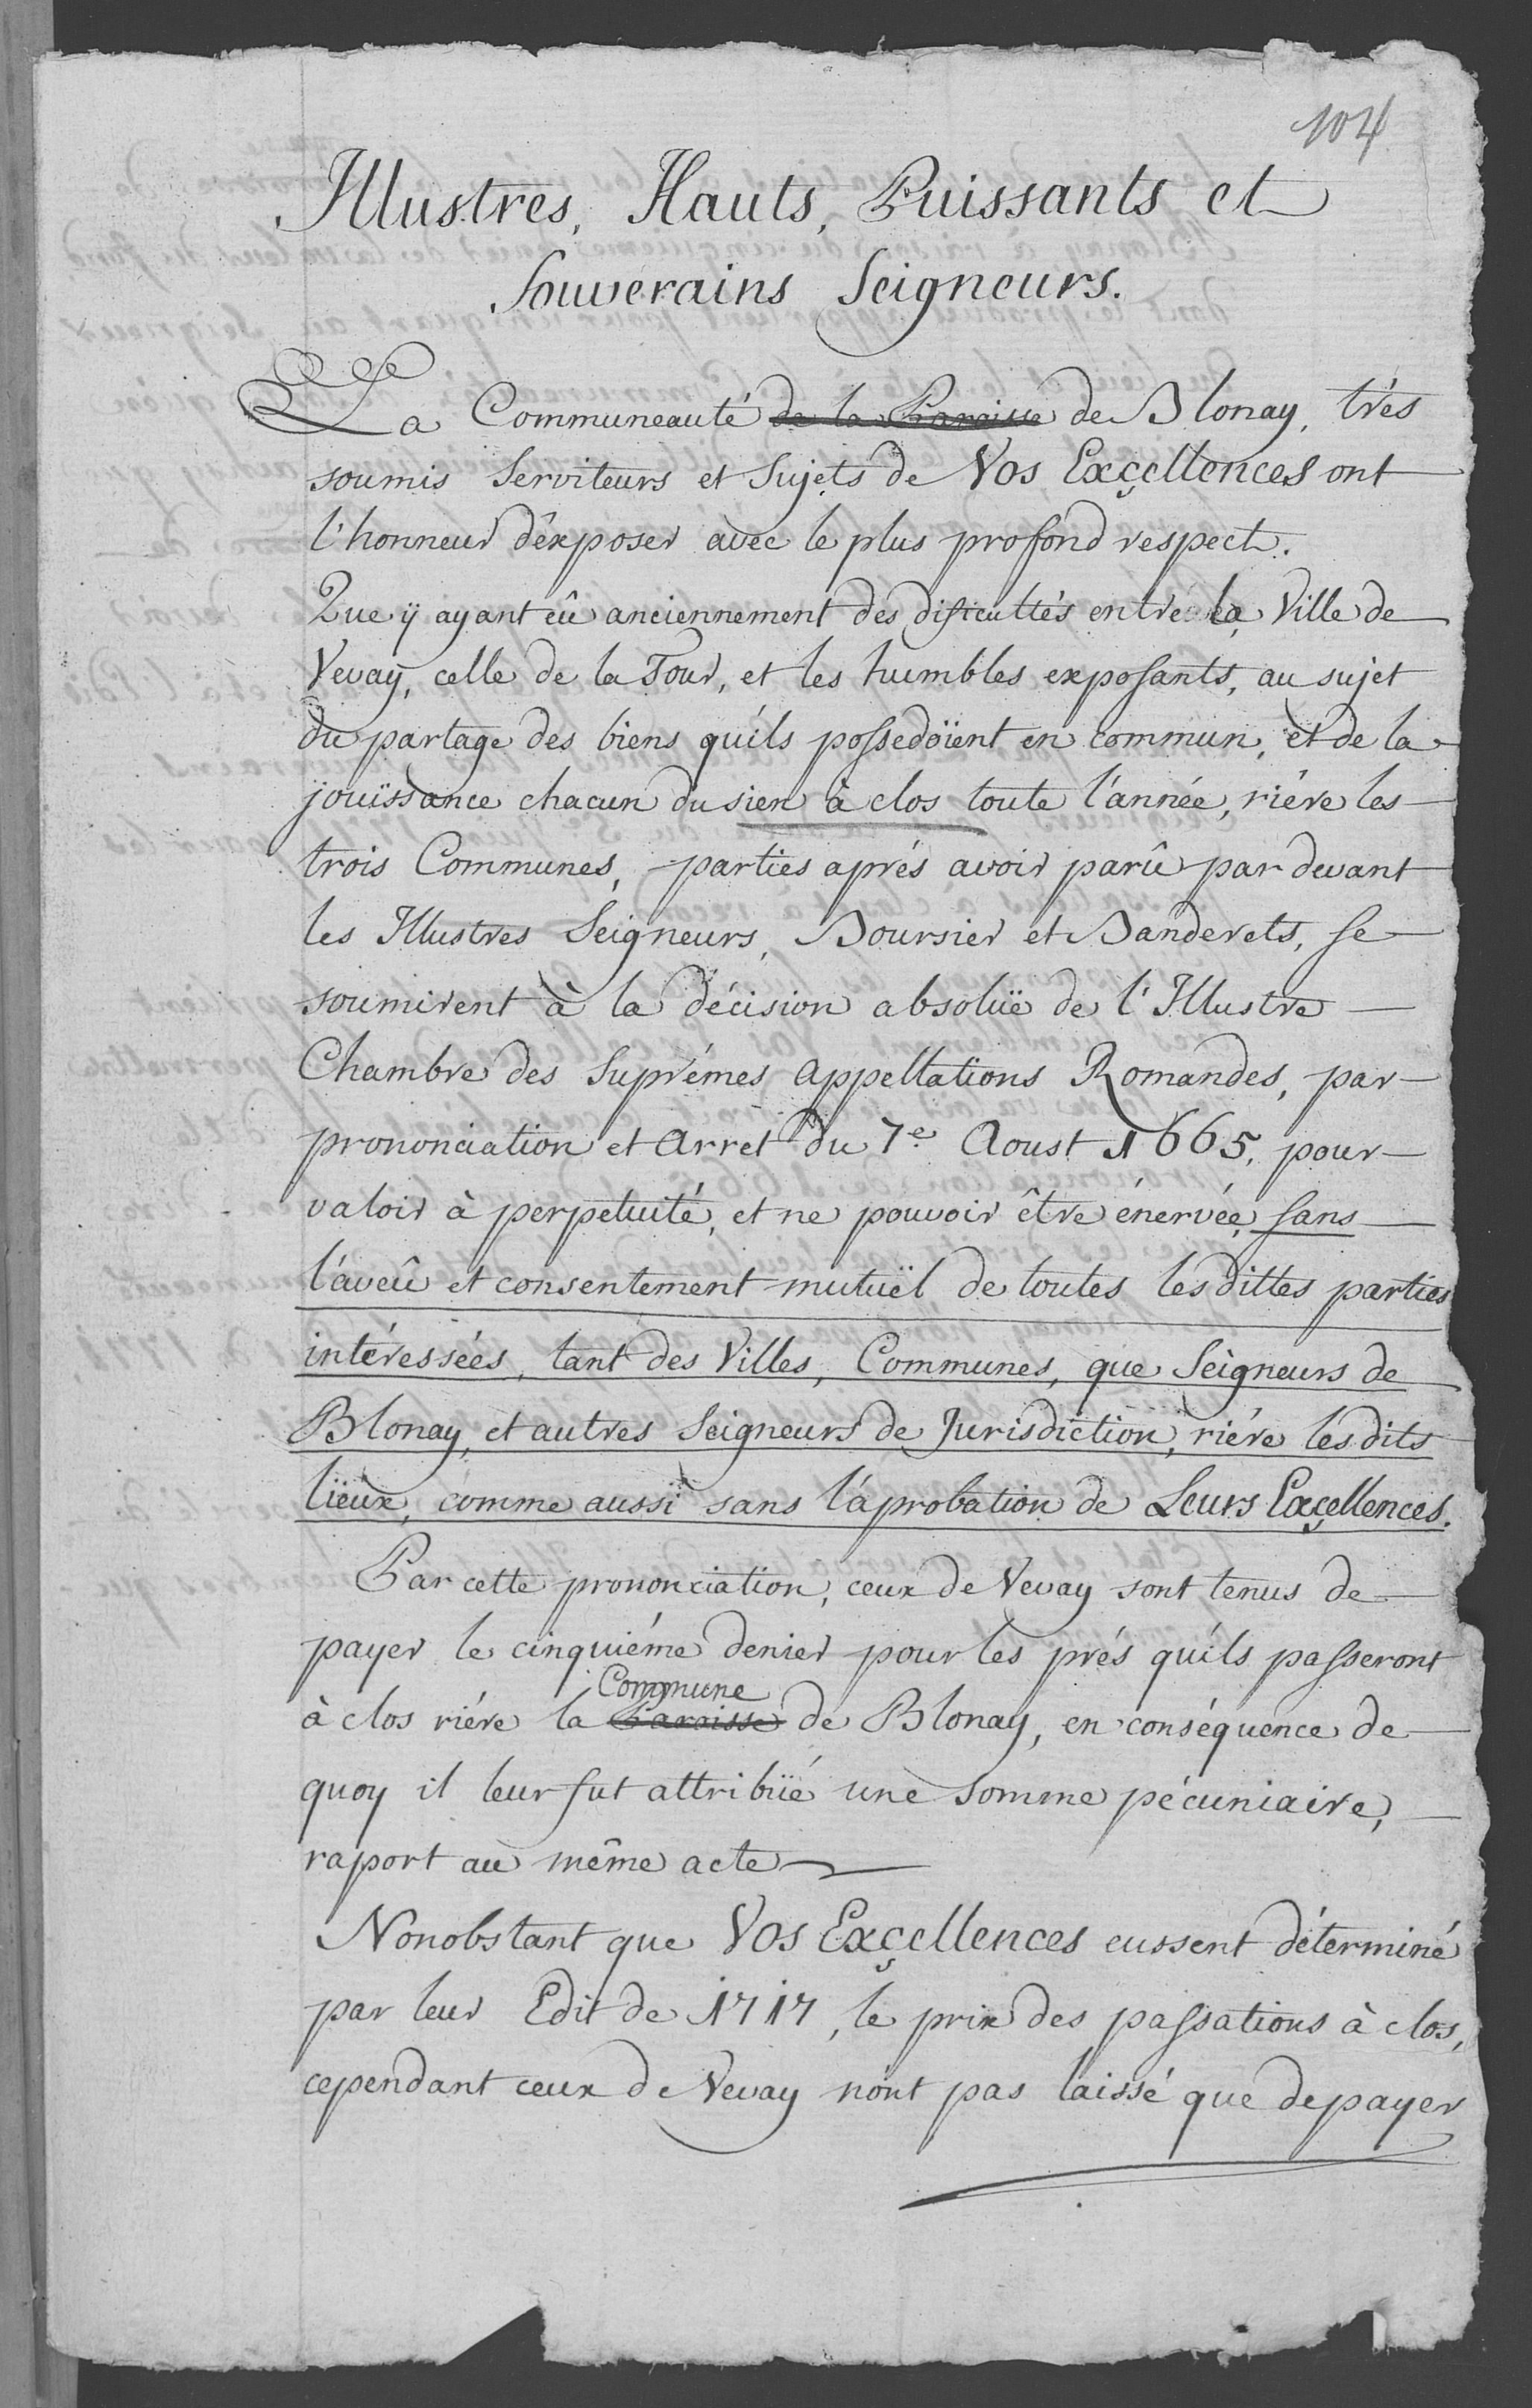 104
Illustres, Hauts, Puissants et
Souverains Seigneurs.
La Communeauté de la Paroisse de Blonay, trés
soumis Serviteurs et Sujets de Vos Exçellences ont
l'honneur d'éxposer avec le plus profond respect.
Que ÿ ayant eû anciennement des dificultés entre la Ville de
Vevay, celle de la Tour, et les humbles exposants, au sujet
du partage des biens qu'ils possedoïent en commun, et de la
jouïssance chacun du sien à clos toute l'année, riére les
trois Communes, parties aprés avoir parû par devant
les Illustres Seigneurs, Boursier et Banderets, se
soumirent à la décision absolüe de l'Illustre
Chambre des Suprémes Appellations Romandes, par
prononciation et Arret du 7e. Aoust 1665, pour
valoir à perpetuité, et ne pouvoir être énervée, sans
l'aveû et consentement mutuël de toutes les dittes parties
intéressées, tant des Villes, Communes, que Seigneurs de
Blonay, et autres Seigneurs de Jurisdiction, riére lesdits
lieux, comme aussi sans l'aprobation de Leurs Exçellences.
Par cette prononciation, ceux de Vevay sont tenus de
payer le cinquiéme denier pour les prés qu'ils passeront
Commune
à clos riére la Paroisse de Blonay, en conséquence de
quoy il leur fut attribüé une somme pécuniaire,
raport au même acte
Nonobstant que Vos Exçellences eussent déterminé
par leur Edit de 1717, le prix des passations à clos,
cependant ceux de Vevay n'ont pas laissé que de payer